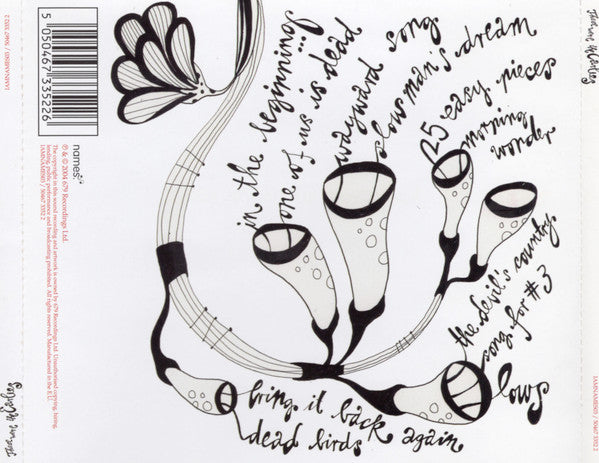 in the beginning...
one of us is dead
wayward song
slow man's dream
25 easy pieces
morning wonder
the devil's country
song for #3
lows
bring it back again
dead birds
5 050467 335226
names:
℗ & © 2004 679 Recordings Ltd.
The copyright in this sound recording and artwork is owned by 679 Recordings Ltd. Unauthorised copying, hiring,
lending, public performance and broadcasting prohibited. All rights reserved. Manufactured in the E.U.
IAMNAMES03 / 50467 3352 2
IAMNAMES03 / 50467 3352 2
IAMNAMES03 / 50467 3352 2